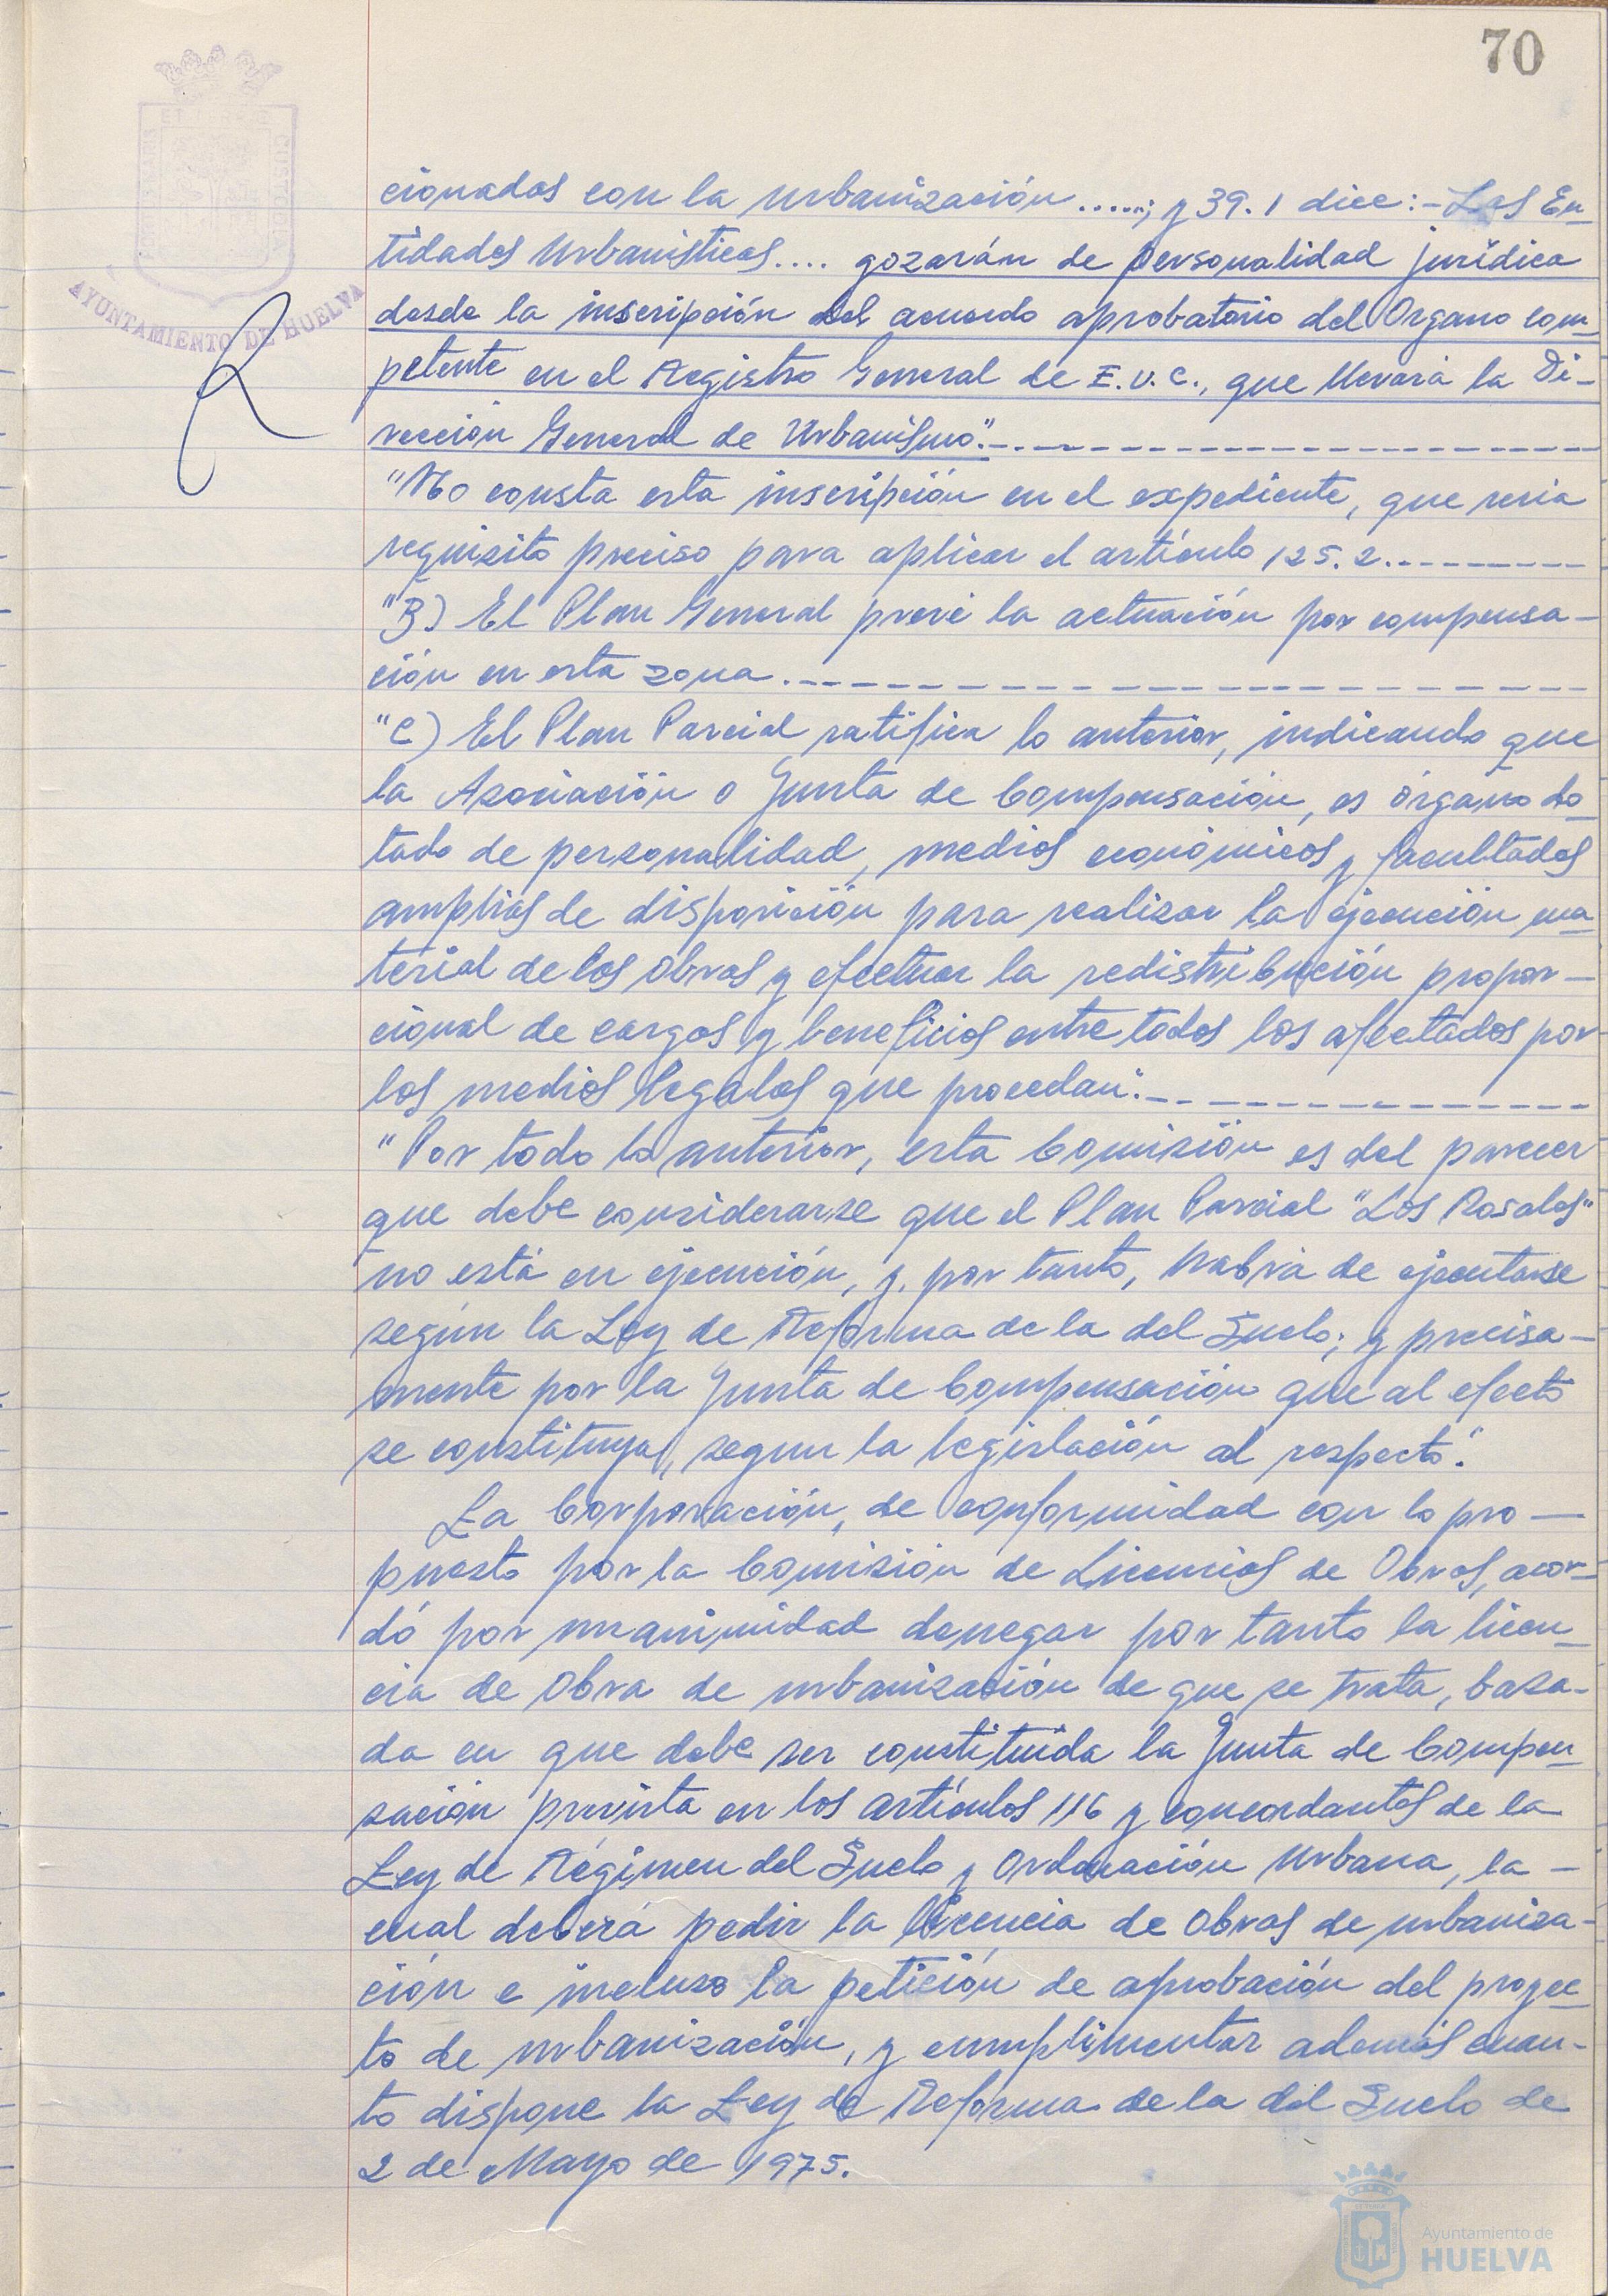 70
AYUNTAMIENTO DE HUELVA
cionadas con la urbanización.....; y 39.1 dice:- Las En-
tidades Urbanísticas.... gozarán de personalidad jurídica
desde la inscripción del acuerdo aprobatorio del Organo com-
petente en el Registro General de E.U.C., que llevará la Di-
rección General de Urbanismo".-
"No consta esta inscripción en el expediente, que sería
requisito preciso para aplicar el artículo 125.2.
"B) El Plan General prevé la actuación por compensa-
ción en esta zona.
"C) El Plan Parcial ratifica lo anterior, indicando que
la Asociación o Junta de Compensación, es órgano do-
tado de personalidad, medios económicos y facultades
amplias de disposición para realizar la ejecución ma-
terial de las obras y efectuar la redistribución propor-
cional de cargas y beneficios entre todos los afectados por
los medios legales que procedan".
"Por todo lo anterior, esta Comisión es del parecer
que debe considerarse que el Plan Parcial "Los Rosales"
no está en ejecución, y, por tanto, habrá de ejecutarse
según la Ley de Reforma de la del Suelo; y precisa-
mente por la Junta de Compensación que al efecto
se constituya, según la legislación al respecto".
La Corporación, de conformidad con lo pro-
puesto por la Comisión de Licencias de Obras, acor-
dó por unanimidad denegar por tanto la licen-
cia de obra de urbanización de que se trata, basa-
da en que debe ser constituida la Junta de Compen-
sación prevista en los artículos 116 y concordantes de la
Ley de Régimen del Suelo y Ordenación Urbana, la-
cual deberá pedir la licencia de obras de urbaniza-
ción e incluso la petición de aprobación del proyec-
to de urbanización, y cumplimentar además cuan-
to dispone la Ley de Reforma de la del Suelo de
2 de Mayo de 1975.
Ayuntamiento de
HUELVA